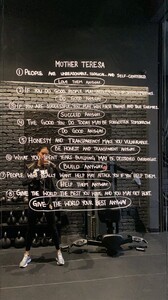 MOTHER TERESA
① PEOPLE ARE UNREASONABLE, ILLOGICAL, AND SELF-CENTERED
LOVE THEM ANYWAY
② IF YOU DO GOOD PEOPLE MAY
③ IF YOU ARE SUCCESSFUL, YOU MAY WIN FALSE FRIENDS AND TRUE ENEMIES
SUCCEED ANYWAY
④ THE GOOD YOU DO TODAY MAY BE FORGOTTEN TOMORROW
DO GOOD ANYWAY
⑤ HONESTY AND TRANSPARENCY MAKE YOU VULNERABLE
BE HONEST AND TRANSPARENT ANYWAY
⑥ WHAT YOU SPENT YEARS BUILDING MAY BE DESTROYED OVERNIGHT
BUILD ANYWAY
⑦ PEOPLE WHO REALLY WANT HELP MAY ATTACK YOU IF YOU HELP THEM
HELP THEM ANYWAY
⑧ GIVE THE WORLD THE BEST YOU HAVE AND YOU MAY GET HURT
GIVE THE WORLD YOUR BEST ANYWAY